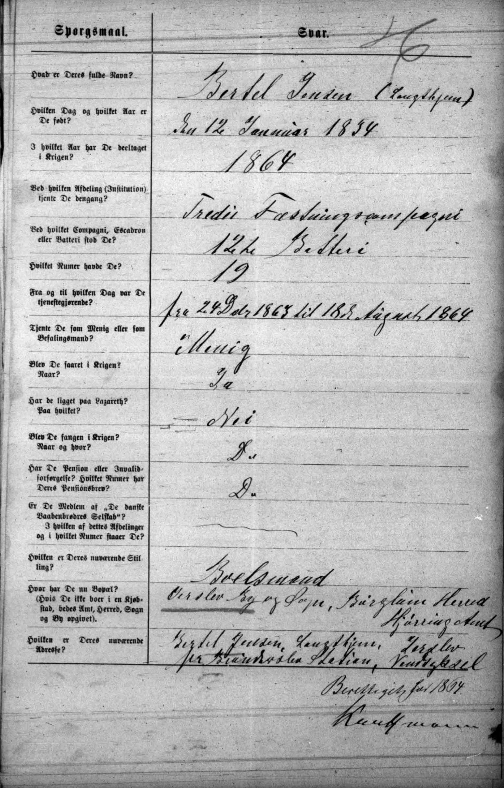 46
Spørgsmaal.
Svar.
Hvad er Deres fulde Navn?
Bertel Jensen (Langthjem)
Hvilken Dag og hvilket Aar er
De født?
den 12 Januar 1834
I hvilket Aar har De deeltaget
i Krigen?
1864
Ved hvilken Afdeling (Institution)
tjente De dengang?
Tredie Fæstningscompagni
Ved hvilket Compagni, Escadron
eller Batteri stod De?
12te Batteri
Hvilket Numer havde De?
19
Fra og til hvilken Dag var De
tjenestegjørende?
fra 24 Dcbr 1863 til 18d August 1864
Tjente De som Menig eller som
Befalingsmand?
Menig
Blev De saaret i Krigen?
Naar?
Ja
Har De ligget paa Lazareth?
Paa hvilket?
Nei
Blev De fangen i Krigen?
Naar og hvor?
Do
Har De Pension eller Invalid-
forsørgelse? Hvilket Numer har
Deres Pensionsbrev?
Do
Er De Medlem af „De danske
Vaabenbrødres Selskab"?
I hvilken af dettes Afdelinger
og i hvilket Numer staaer De?
Hvilken er Deres nuværende Stil-
ling?
Boelsmand
Hvor har De nu Bopæl?
(Hvis De ikke boer i en Kjøb-
stad, bedes Amt, Herred, Sogn
og By opgivet).
By og Sogn, Børglum Herred
Hjørring Amt
Hvilken er Deres nuværende
Adresse?
Bertel Jensen, Langthjem,
pr Station, Vendsyssel
Berettiget for 1864
Kauffmann